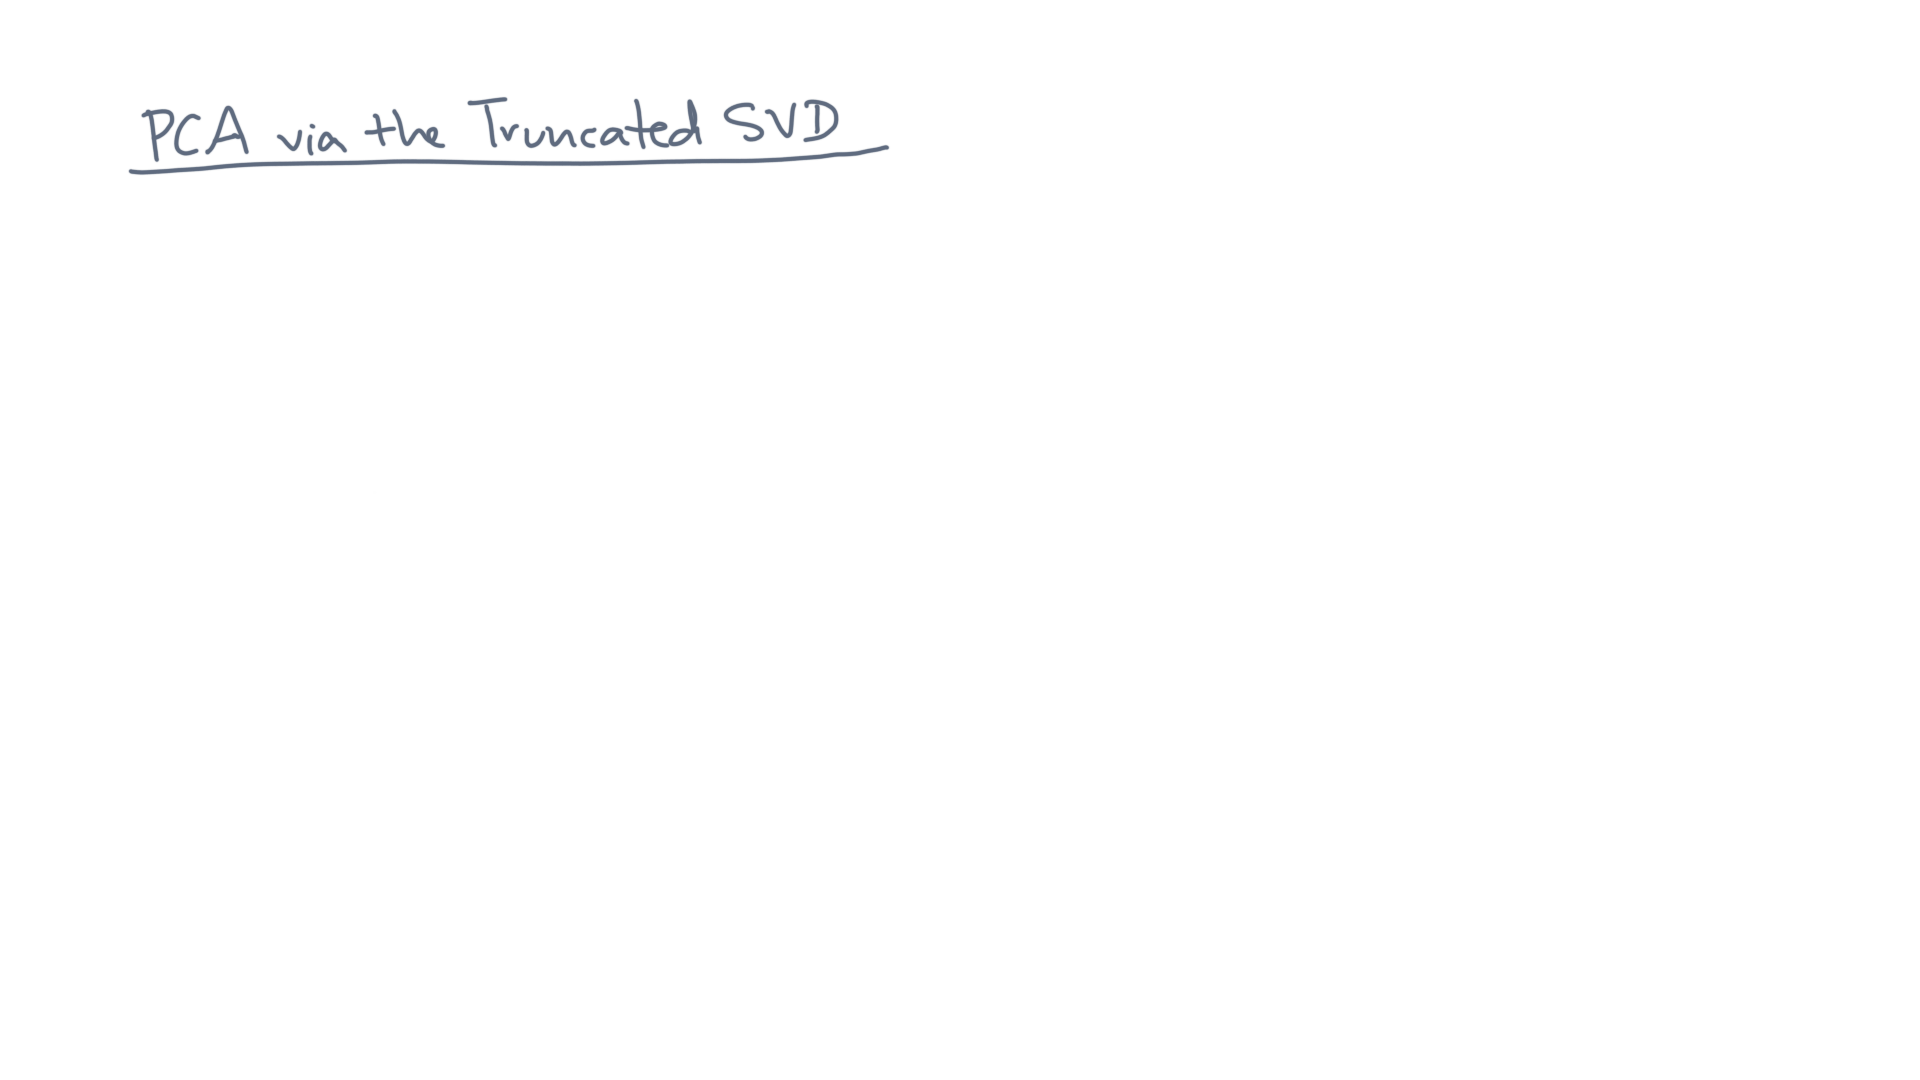 PCA via the Truncated SVD